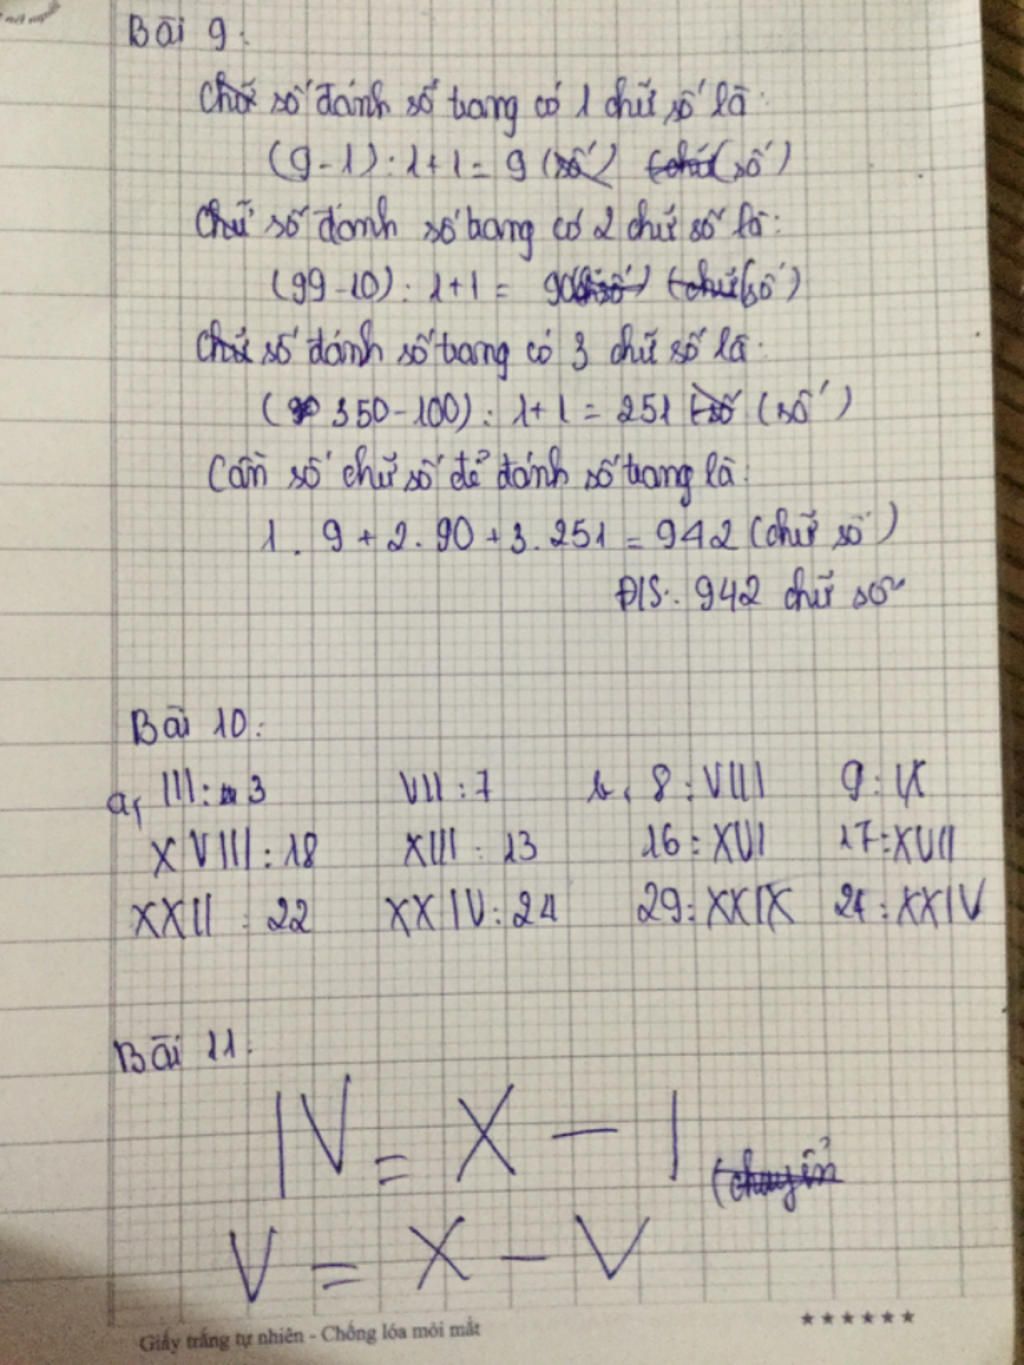 Bài 9:
Chữ số đánh số trang có 1 chữ số là:
(9-1):1+1= 9 (số) (chữ (số)
Chữ số đánh số trang có 2 chữ số là:
(99-10): 1+1= 90 (chữ (số)
Chữ số đánh số trang có 3 chữ số là:
( 350-100): 1+1 = 251 (số (số)
Cần số chữ số để đánh số trang là:
1.9+2.90+3.251=942 (chữ số)
Đ/S: 942 chữ số
Bài 10:
a, III: 3 VII:7 b, 8:VIII 9:IX
XVIII:18 XIII:13 16:XVI 17:XVII
XXII:22 XXIV:24 29:XXIX 24:XXIV
Bài 11:
IV = X - I (chuyển
V = X - V
Giấy trắng tự nhiên - Chống lóa mỏi mắt